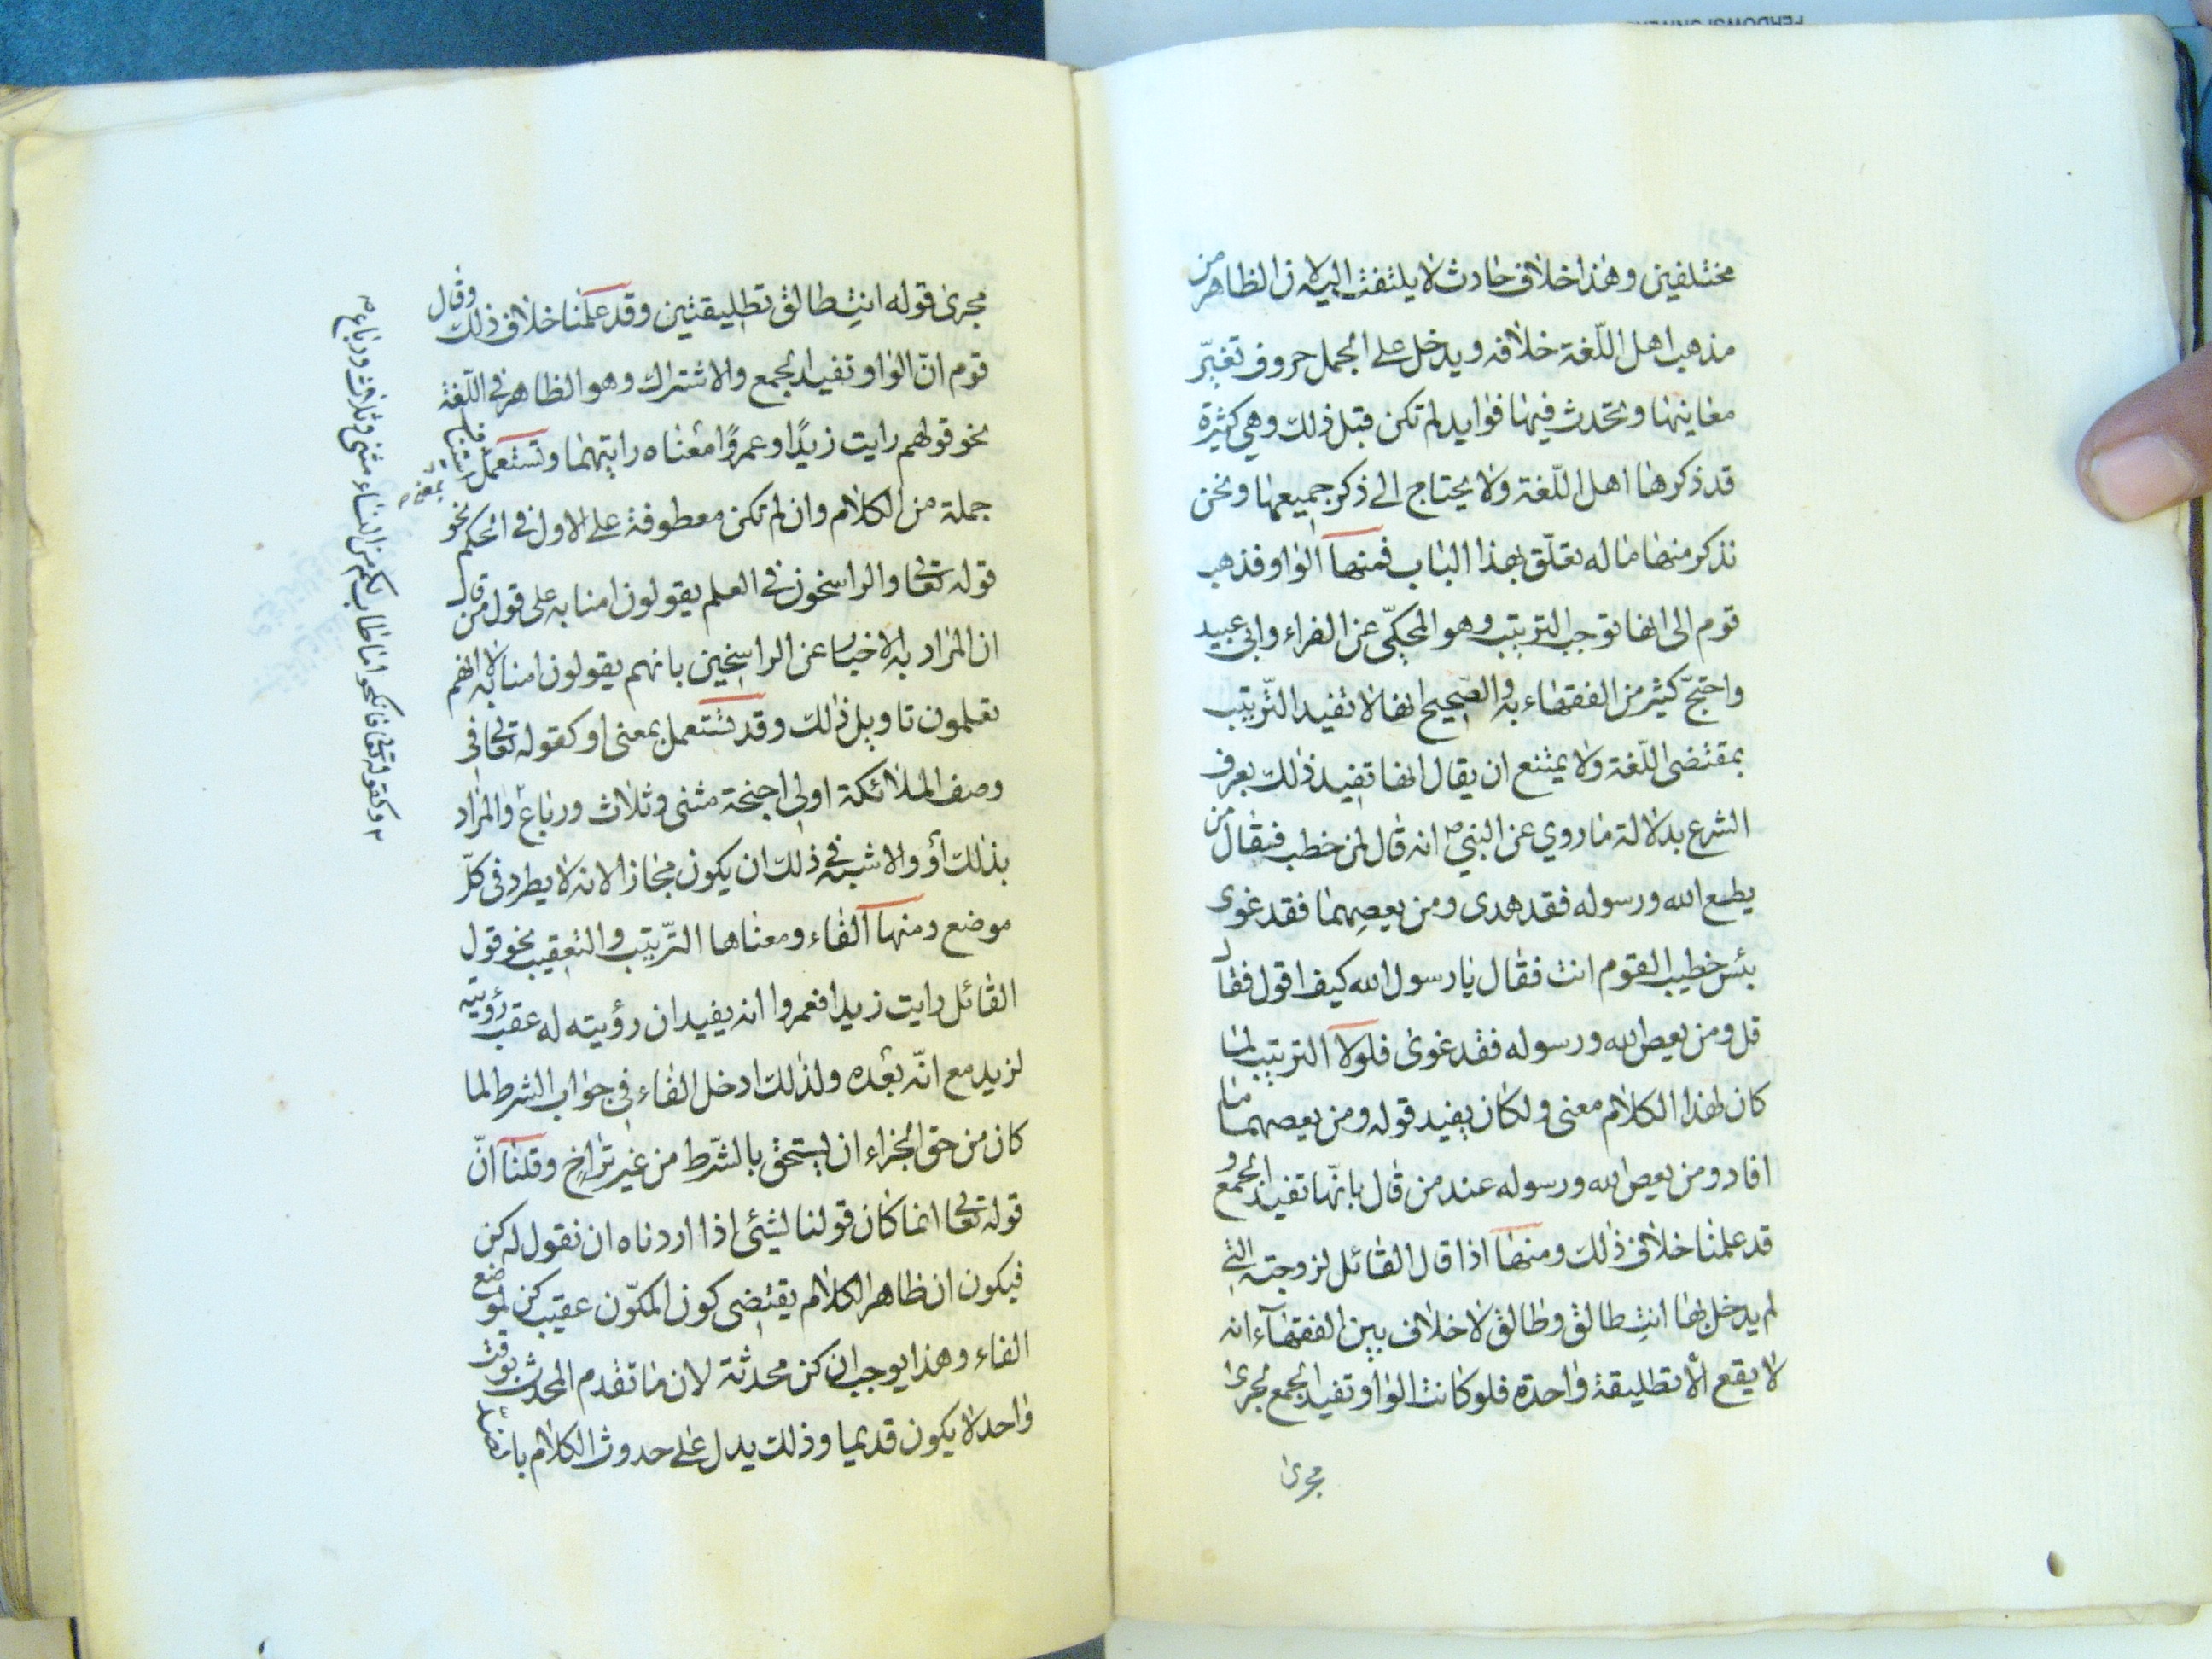 مختلفين وهذا خلاف حادث لا يلتفت اليه لان الظاهر من
مذهب اهل اللّغة خلافه ويدخل على الجمل حروف تغيّر
معانيها وتحدث فيها فوايد لم تكن قبل ذلك وهي كثيرة
قد ذكرها اهل اللّغة ولا يحتاج الى ذكر جميعها ونحن
نذكر منها ما له تعلّق بهذا الباب فمنها الواو فذهب
قوم الى انها توجب الترتيب وهو المحكيّ عن الفراء وابي عبيد
واحتجّ كثير من الفقهاء به والصّحيح انها لا تفيد التّرتيب
بمقتضى اللّغة ولا يمتنع ان يقال انها تفيد ذلك بعرف
الشرع بدلالة ما روي عن النبي ص انه قال لمن خطب فقال من
يطع الله ورسوله فقد هدى ومن يعصهما فقد غوى
بئس خطيب القوم انت فقال يا رسول الله كيف اقول فقال
قل ومن يعص الله ورسوله فقد غوى فلولا الترتيب لما
كان لهذا الكلام معنى ولكان يفيد قوله ومن يعصهما ما
افاد ومن يعص الله ورسوله عند من قال بانّها تفيد الجمع و
قد علمنا خلاف ذلك ومنها اذا قال القائل لزوجته التي
لم يدخل بها انتِ طالق وطالق لا خلاف بين الفقهآء انه
لا يقع الّا تطليقة واحدة فلو كانت الواو تفيد الجمع لجرى
مجرى
مجرى قوله انتِ طالق تطليقتين وقد علمنا خلاف ذلك وقال
قوم انّ الواو تفيد الجمع والاشتراك وهو الظاهر في اللّغة
نحو قولهم رايت زيدًا وعمروًا معناه رايتهما وتستعمل استيناف
جملة من الكلام وان لم تكن معطوفة على الاول في الحكم نحو
قوله تعالى والراسخون في العلم يقولون امنا به على قول من قال
ان المراد به الاخبار عن الراسخين بانهم يقولون امنا به لا انهم
يعلمون تاويل ذلك وقد تستعمل بمعنى او كقوله تعالى في
وصف الملائكة اولي اجنحة مثنى وثلاث ورباع والمراد
بذلك أو والاشبه في ذلك ان يكون مجازا لانه لا يطرد في كلّ
موضع ومنها الفاء ومعناها التّرتيب والتعقيب نحو قول
القائل رايت زيدا فعمروا انه يفيد ان رؤيته له عقب رؤيته
لزيد مع انّه بعده ولذلك ادخل الفاء في جواب الشرط لما
كان من حق الجزاء ان يستحق بالشّرط من غير تراخٍ وقلنا انّ
قوله تعالى انما كان قولنا لشيئ اذا اردناه ان نقول له كن
فيكون ان ظاهر الكلام يقتضى كون المكوّن عقيب كن لموضع
الفاء وهذا يوجب ان كن محدثة لان ما تقدم المحدث بوقت
واحد لا يكون قديما وذلك يدل على حدوث الكلام بالضدّ
وكقوله تعالى فانكحوا ما طاب لكم من النساء مثنى وثلاث ورباع